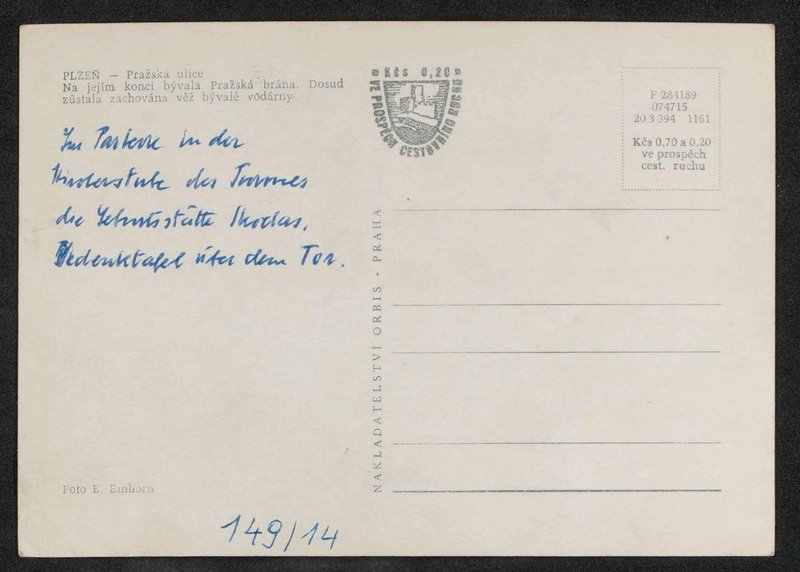 PLZEŇ — Pražská ulice
Na jejím konci bývala Pražská brána. Dosud
zůstala zachována věž bývalé vodárny
Im Parterre in der
des
die Geburtsstätte Skodas.
Gedenktafel über dem Tor.
Foto E. Einhorn
149/14
Kčs 0,20
VE PROSPĚCH CESTOVNÍHO RUCHU
NAKLADATELSTVÍ ORBIS - PRAHA
F 284189
074715
20 3 394 1161
Kčs 0,70 a 0,20
ve prospěch
cest. ruchu